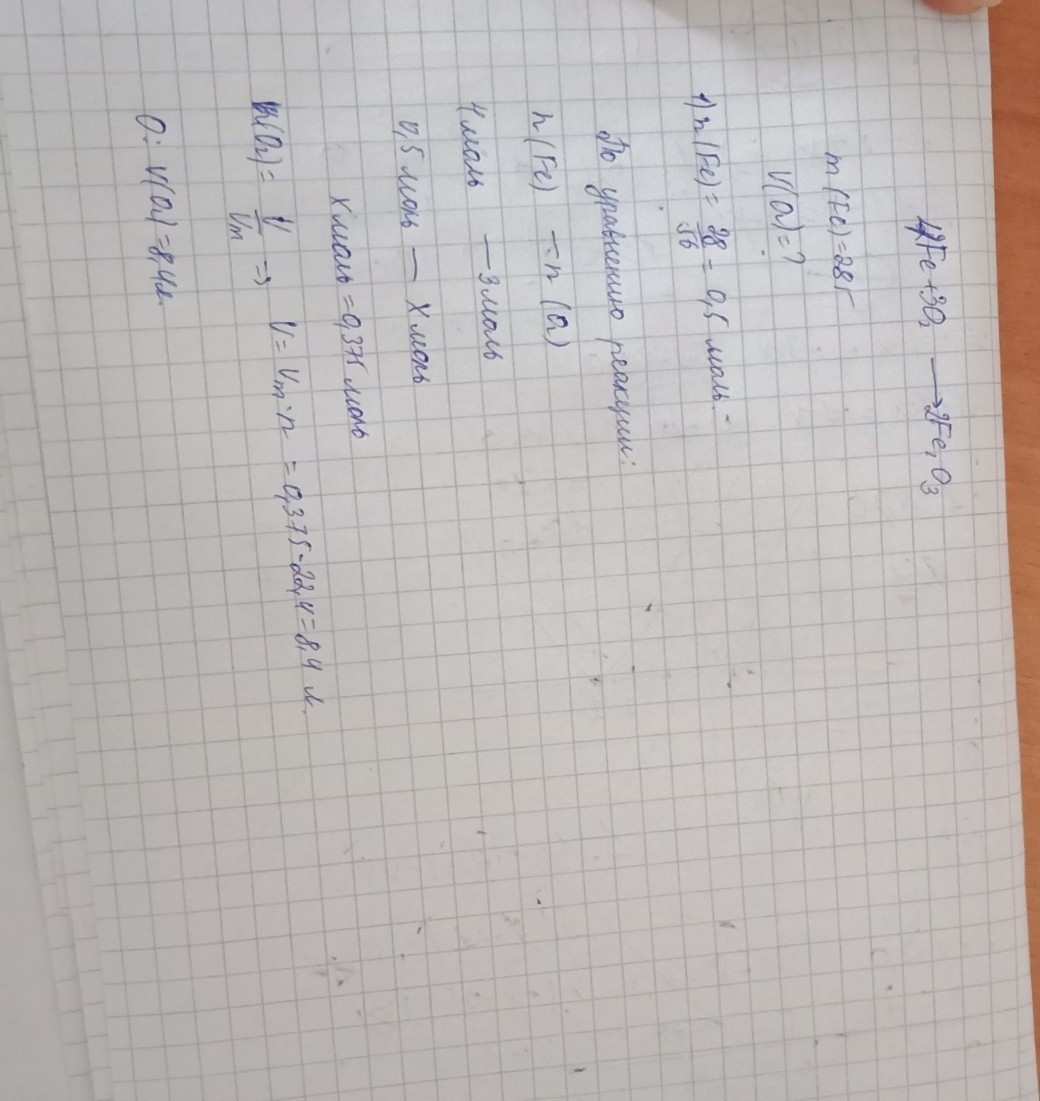 4Fe + 3O₂ → 2Fe₂O₃
m(Fe) = 28г
V(O₂) = ?
1) n(Fe) = 28/56 = 0,5 моль.
По уравнению реакции:
n(Fe) — n(O₂)
4 моль — 3 моль
0,5 моль — X моль
X моль = 0,375 моль
n(O₂) = V/Vm => V = Vm·n = 0,375·22,4 = 8,4 л.
О: V(O₂) = 8,4л.